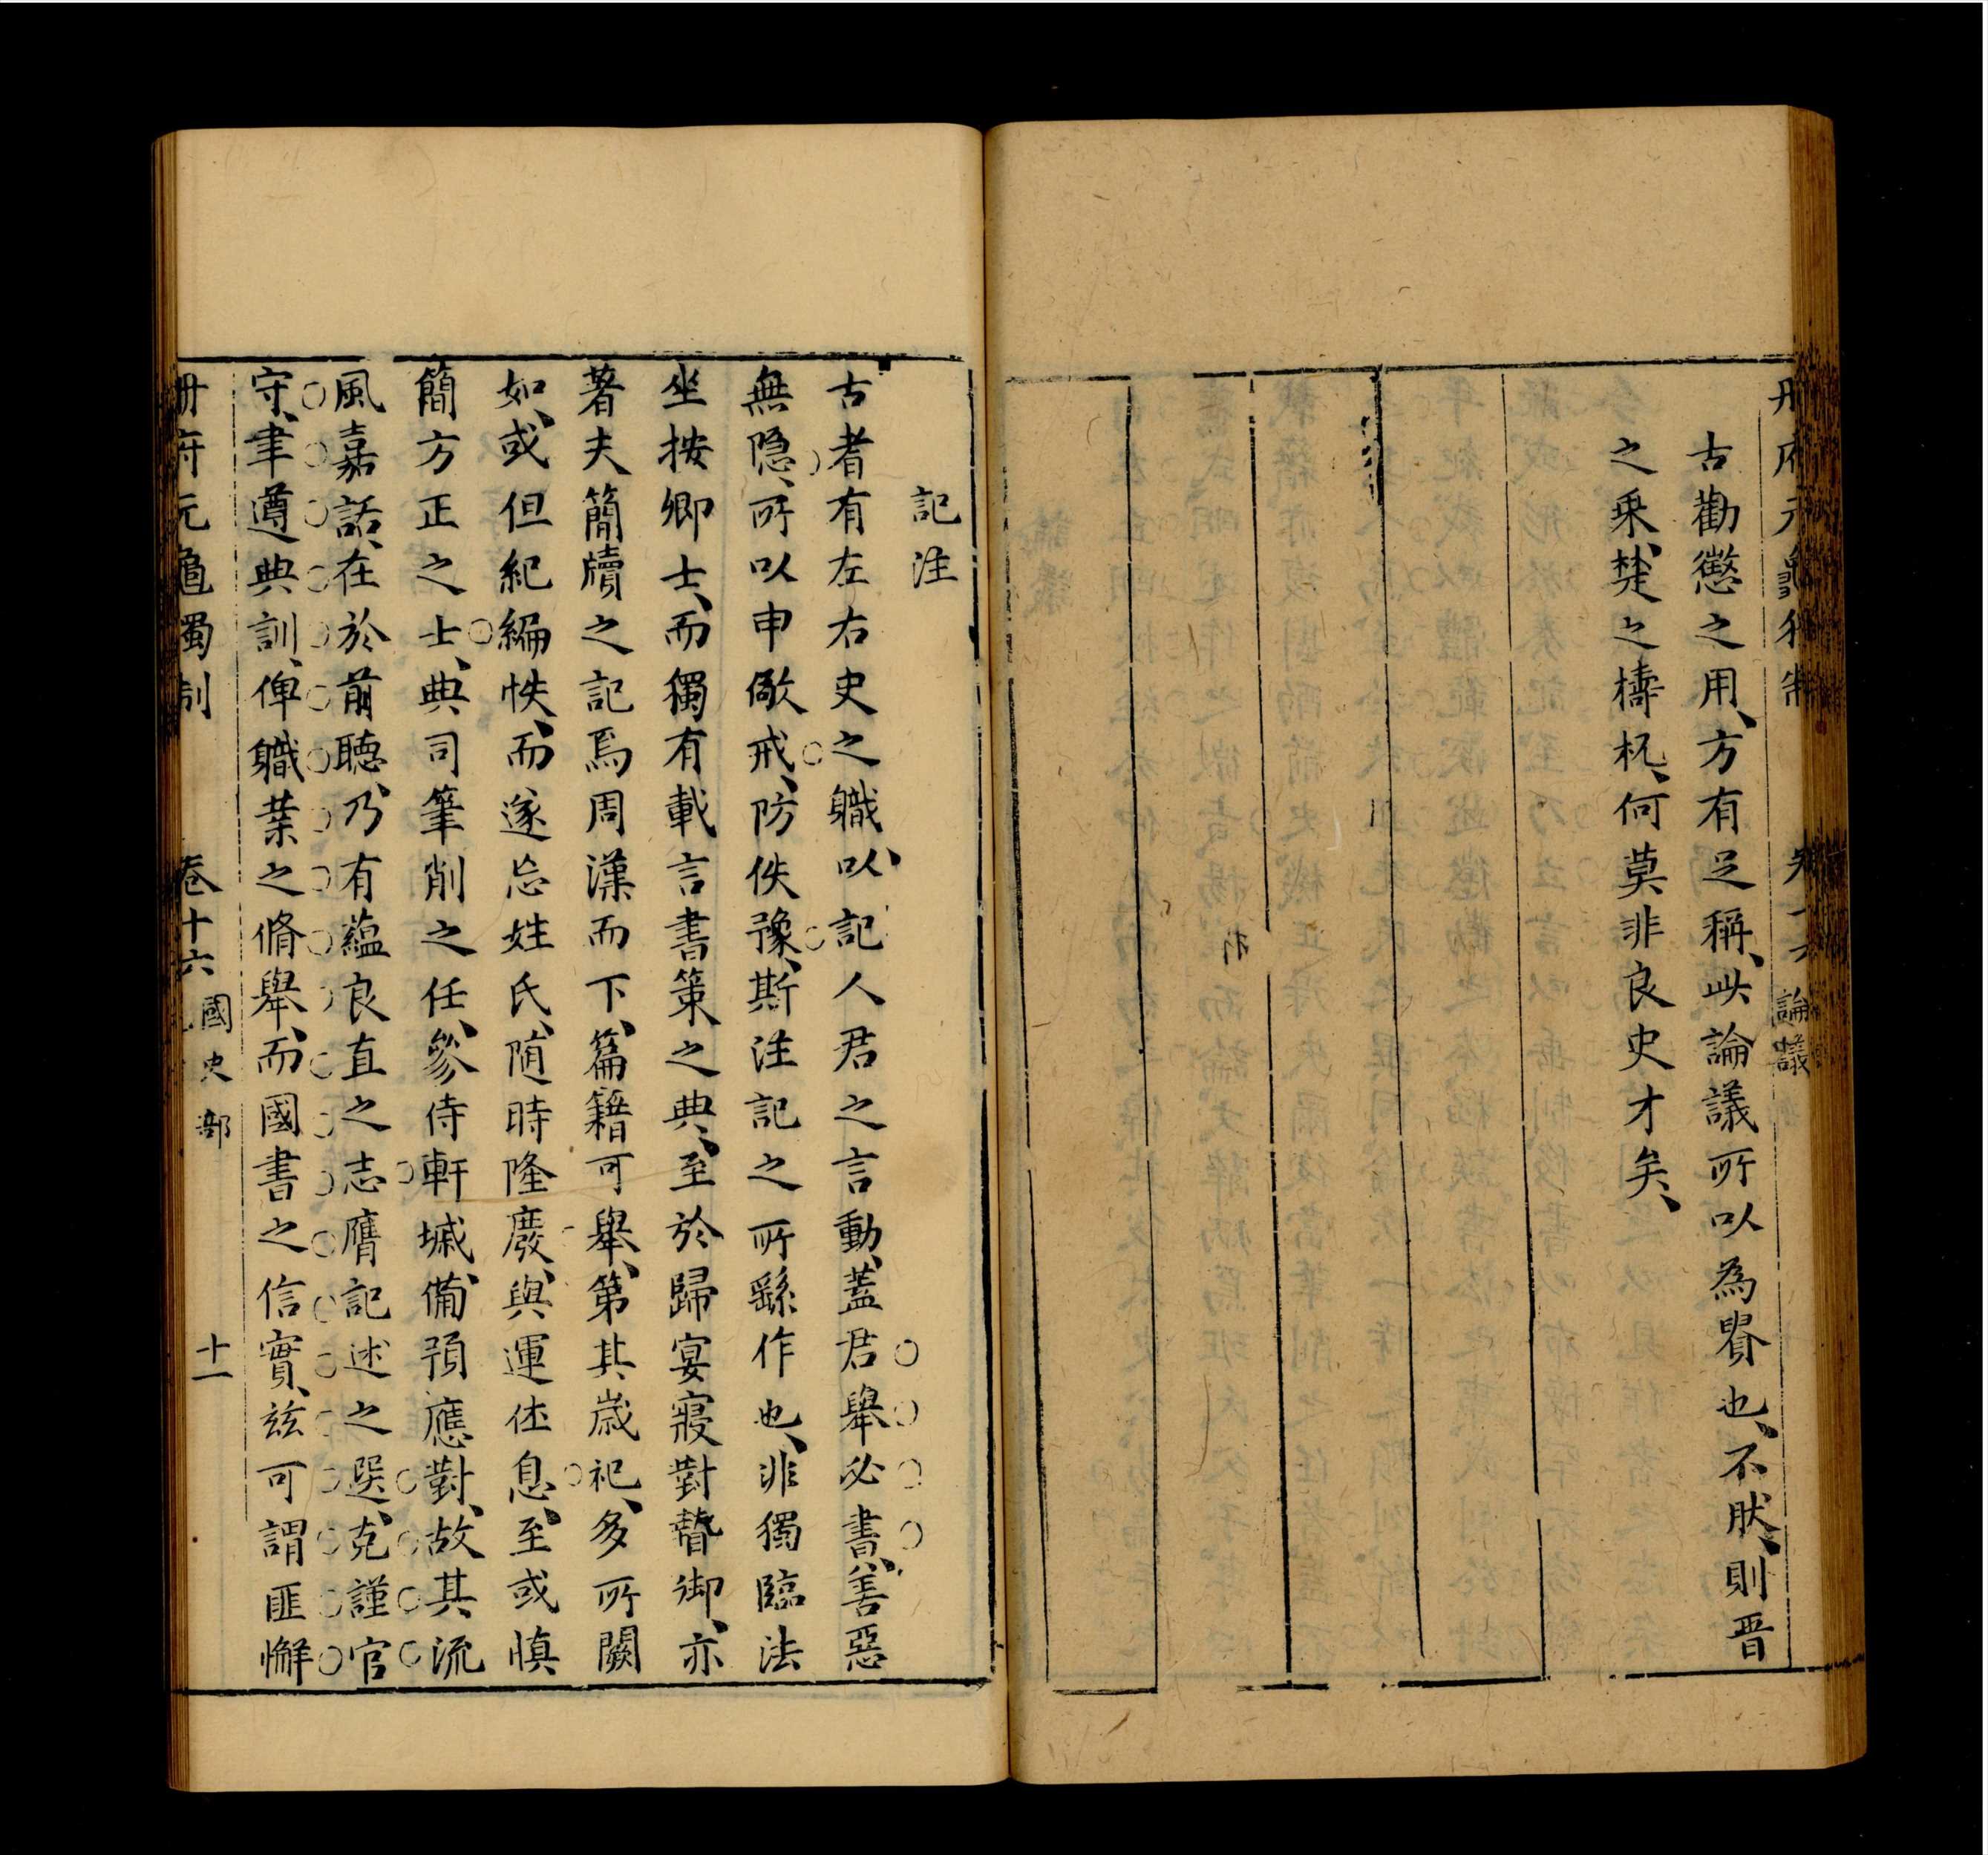 册府元龜獨制 卷十六 論議
古勸懲之用、方有足稱、此論議所以為賚也、不肰、則晋
之乘、楚之檮杌、何莫非良史才矣、
記注
古者有左右史之職、以記人君之言動、蓋君舉必書、善惡
無隱、所以申儆戒、防佚豫、斯注記之所繇作也、非獨臨法
坐按卿士、而獨有載言書策之典、至於歸宴寢對瞽御、亦
著夫簡牘之記焉周漢而下、篇籍可舉、第其歲祀、多所闕
如、或但紀編帙、而遂忘姓氏、随時隆廢、與運伥息、至或慎
簡方正之士、典司筆削之任、參侍軒墄、備預應對、故其流
風嘉話、在於前聽、乃有蘊良直之志膺記述之選、克謹官
守、聿遵典訓、俾職業之脩舉、而國書之信實、兹可謂匪懈
册府元龜獨制 卷十六 國史部 十一